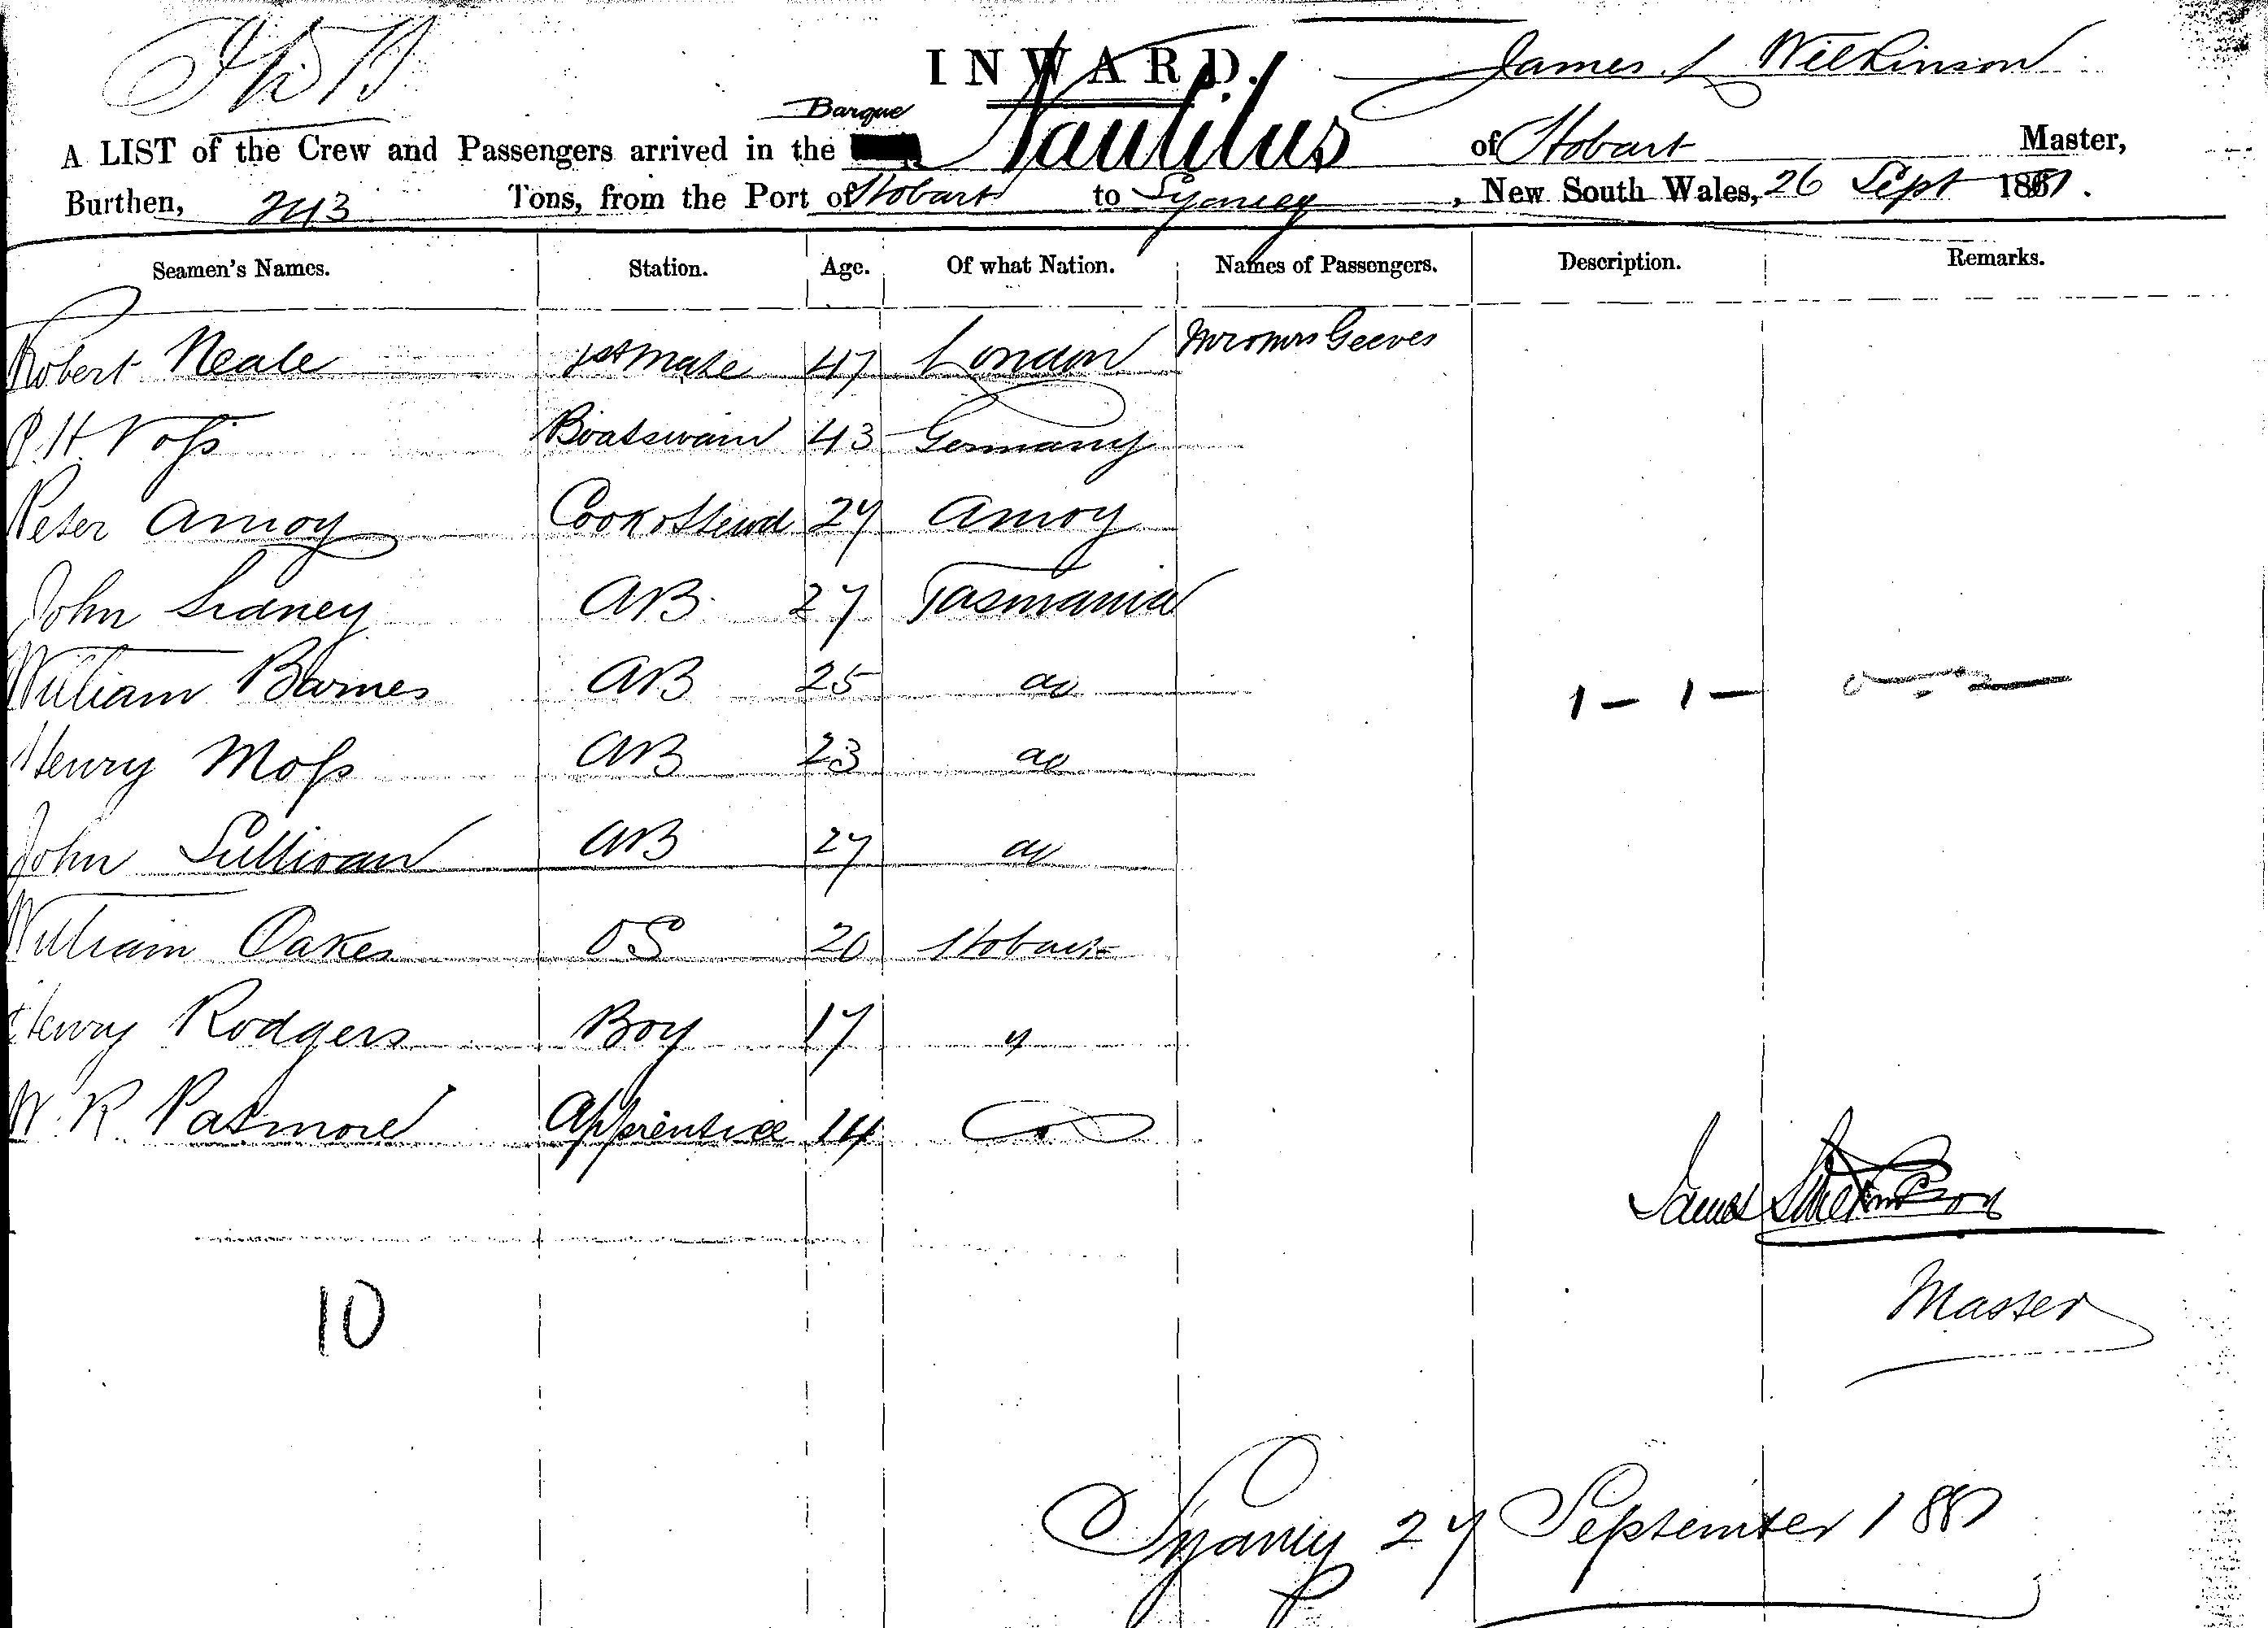 INWARD.
James S Wilkinson
Barque
A LIST of the Crew and Passengers arrived in the Nautilus of Hobart Master,
Burthen, 243 Tons, from the Port of Hobart to Sydney, New South Wales, 26 Sept 1881.
Seamen's Names. Station. Age. Of what Nation. Names of Passengers. Description. Remarks.
Robert Neale 1st Mate 47 London Mr & Mrs Geeves
P. H. Voss Boatswain 43 Germany
Peter Amoy Cook & Stewd 27 Amoy
John Sidney AB 27 Tasmania
William Barnes AB 25 do 1 - 1 -
Henry Moss AB 23 do
John Sullivan AB 27 do
William Oakes OS 20 Hobart
Henry Rodgers Boy 17 "
W. R. Patmore Apprentice 14 do
James S Wilkinson
10
Master
Sydney 27 September 1881